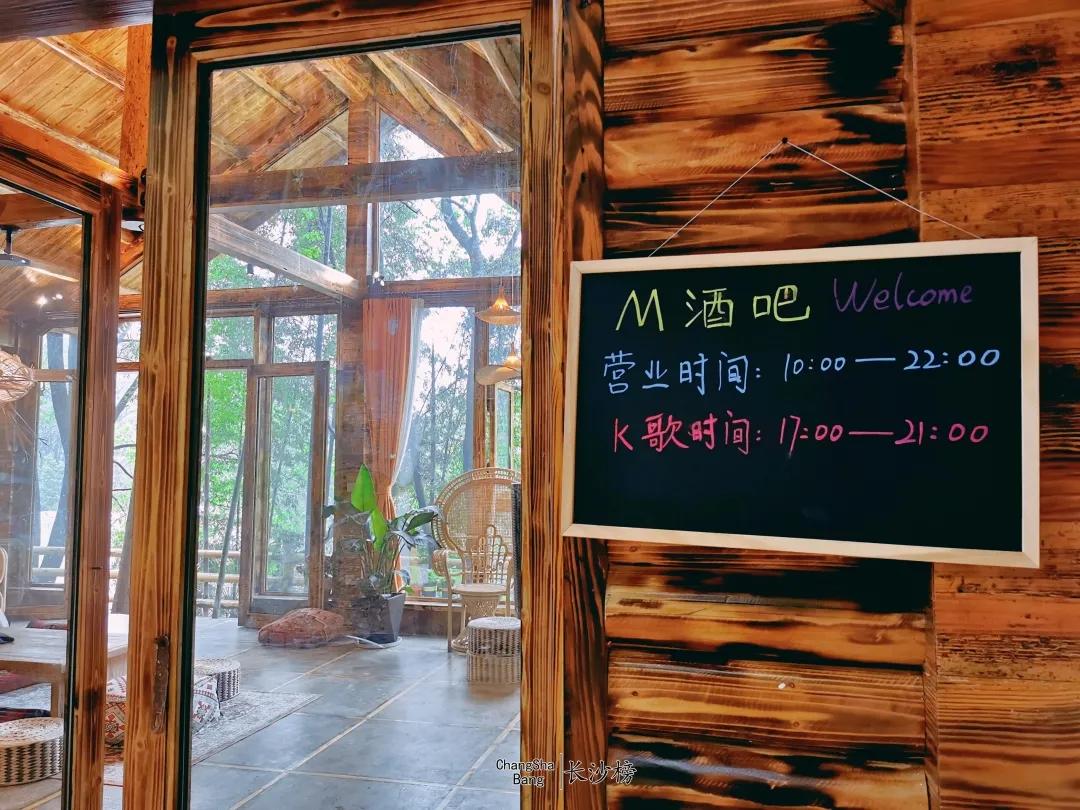 M 酒吧 Welcome
营业时间: 10:00—22:00
K歌时间: 17:00—21:00
ChangSha
Bang
长沙榜